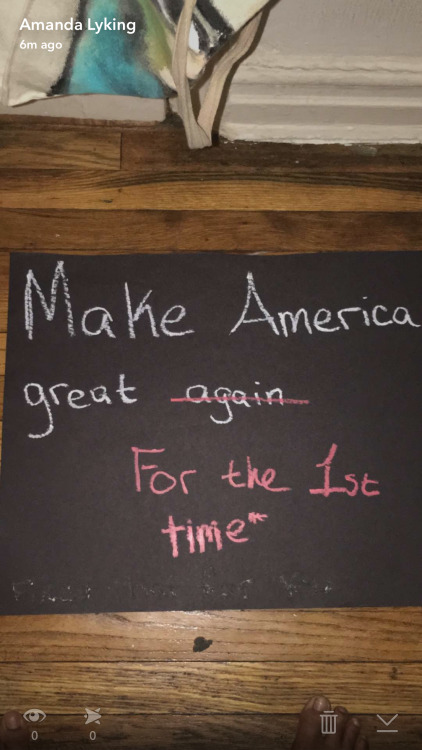 Amanda Lyking
6m ago
Make America
great again
For the 1st
time*
0 0